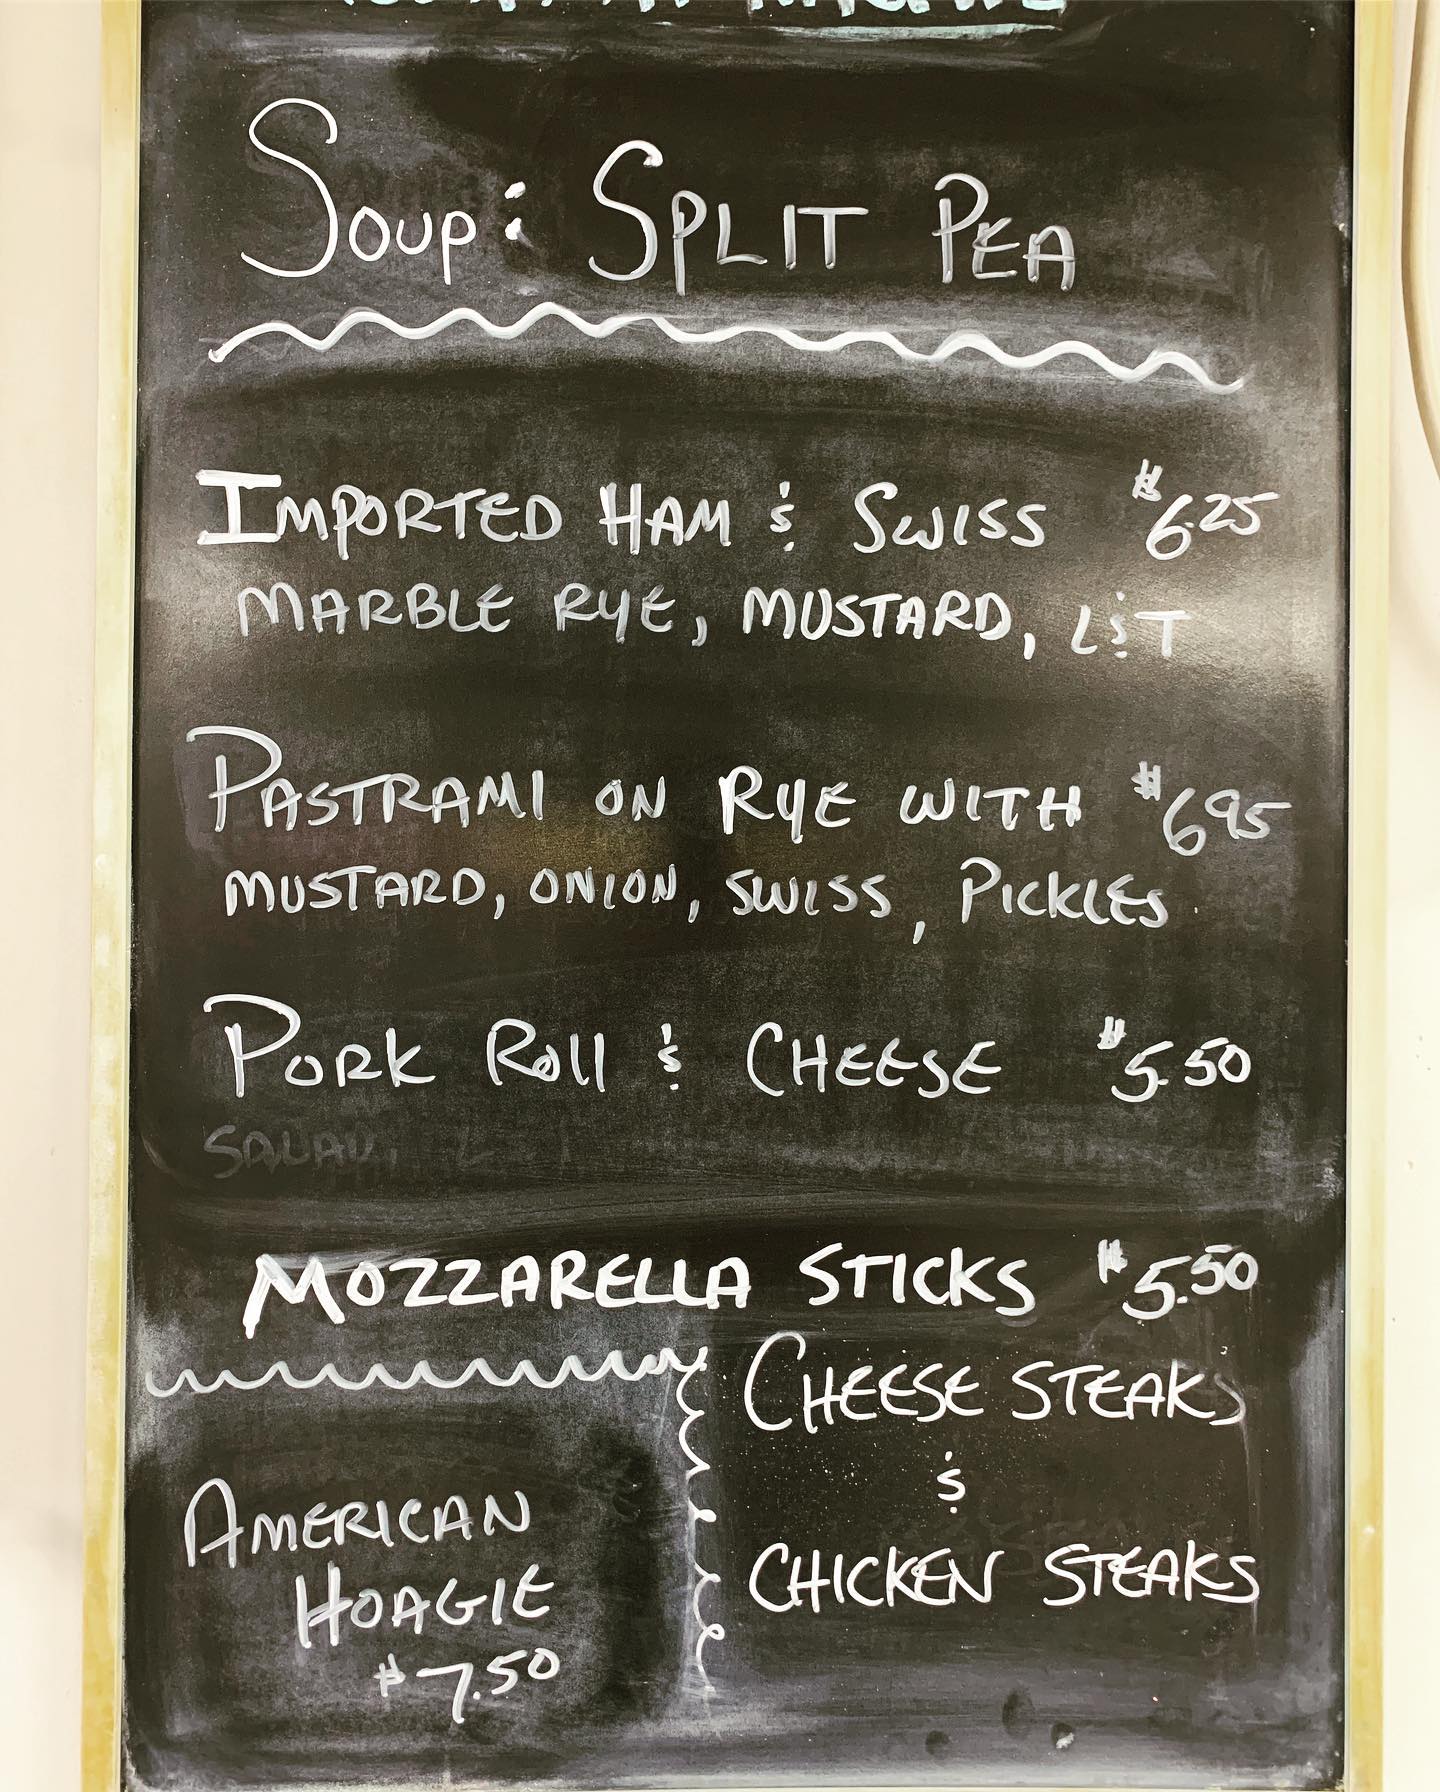 Soup: Split Pea
Imported Ham & Swiss $6.25
Marble Rye, Mustard, L&T
Pastrami on Rye with $6.95
Mustard, Onion, Swiss, Pickles
Pork Roll & Cheese $5.50
Mozzarella Sticks $5.50
Cheese Steaks
&
Chicken Steaks
American
Hoagie
$7.50